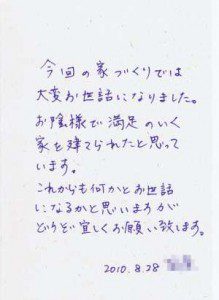 今回の家づくりでは
大変お世話になりました。
お陰様で満足のいく
家を建てられたと思って
います。
これからも何かとお世話
になるかと思いますが
どうぞ宜しくお願い致します。
2010.8.28